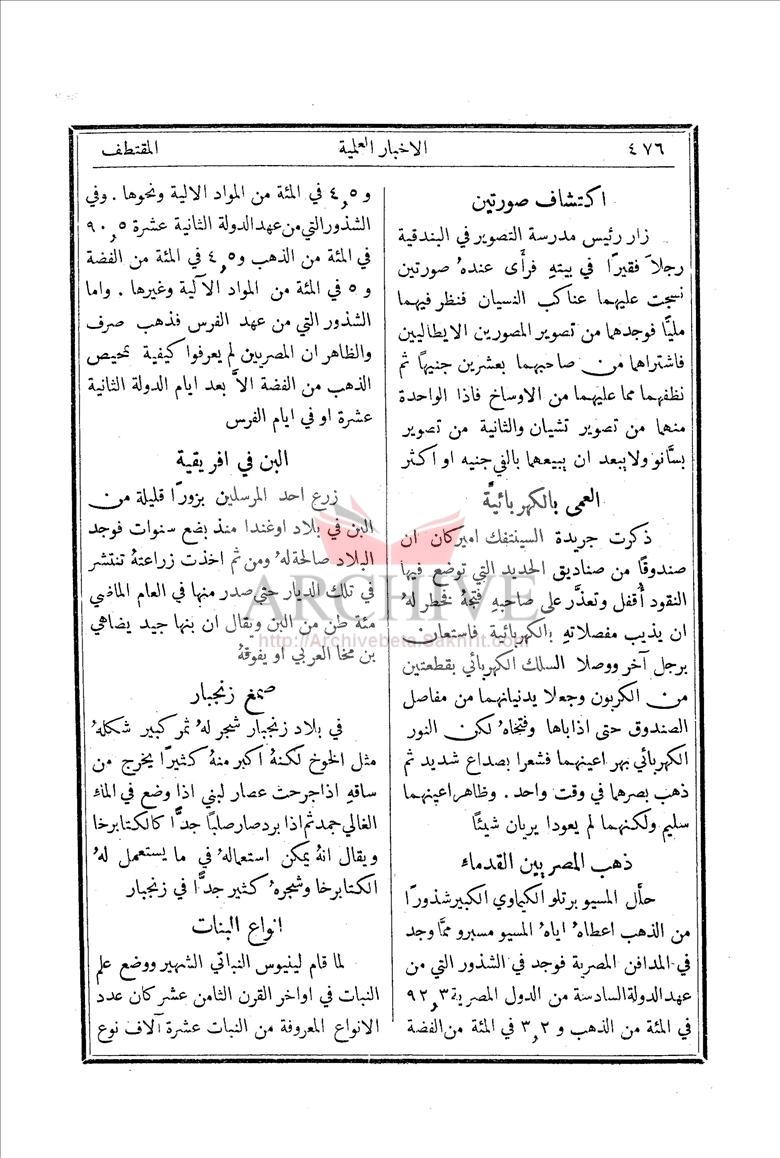 ٤٧٦
الاخبار العلمية
المقتطف
اكتشاف صورتين
زار رئيس مدرسة التصوير في البندقية
رجلاً فقيرًا في بيتهِ فرأَى عندهُ صورتين
نسجت عليهما عناكب النسيان فنظر فيهما
مليًّا فوجدها من تصوير المصورين الايطاليين
فاشتراها من صاحبهما بعشرين جنيهًا ثم
نظفهما مما عليهما من الاوساخ فاذا الواحدة
منهما من تصوير تشيان والثانية من تصوير
بسَّانو ولا يبعد ان يبيعهما بالفي جنيه او اكثر
العمى بالكهربائيَّة
ذكرت جريدة السينتفك اميركان ان
صندوقًا من صناديق الحديد التي توضع فيها
النقود أُقفل وتعذَّر على صاحبهِ فتحهُ فخطر لهُ
ان يذيب مفصلاتهِ بالكهربائية فاستعان
برجل آخر ووصلا السلك الكهربائي بقطعتين
من الكربون وجعلا يدنيانهما من مفاصل
الصندوق حتى اذاباها وفتحاهُ لكن النور
الكهربائي بهر اعينهما فشعرا بصداع شديد ثم
ذهب بصرهما في وقت واحد . وظاهر اعينهما
سليم ولكنهما لم يعودا يريان شيئًا
ذهب المصريين القدماء
حلَّل المسيو برتلو الكيماوي الكبير شذورًا
من الذهب اعطاهُ اياهُ المسيو مسبرو ممَّا وجد
في المدافن المصرية فوجد في الشذور التي من
عهد الدولة السادسة من الدول المصرية ٩٢٫٣
في المئة من الذهب و ٣٫٢ في المئة من الفضة
و ٤٫٥ في المئة من المواد الالية ونحوها . وفي
الشذور التي من عهد الدولة الثانية عشرة ٩٠٫٥
في المئة من الذهب و ٤٫٥ في المئة من الفضة
و ٥ في المئة من المواد الآلية وغيرها . واما
الشذور التي من عهد الفرس فذهب صرف
والظاهر ان المصريين لم يعرفوا كيفية تمحيص
الذهب من الفضة الاَّ بعد ايام الدولة الثانية
عشرة او في ايام الفرس
البن في افريقية
زرع احد المرسلين بزورًا قليلة من
البن في بلاد اوغندا منذ بضع سنوات فوجد
البلاد صالحة لهُ ومن ثم اخذت زراعتهُ تنتشر
في تلك الديار حتى صدر منها في العام الماضي
مئة طن من البن ويقال ان بنها جيد يضاهي
بن مخا العربي او يفوقهُ
صمغ زنجبار
في بلاد زنجبار شجر لهُ ثمر كبير شكلهُ
مثل الخوخ لكنهُ اكبر منهُ كثيرًا يخرج من
ساقهِ اذا جرحت عصار لبني اذا وضع في الماء
الغالي جمد ثم اذا برد صار صلبًا جدًّا كالكتابرخا
ويقال انهُ يمكن استعمالهُ في ما يستعمل لهُ
الكتابرخا وشجرهُ كثير جدًّا في زنجبار
انواع النبات
لما قام لينيوس النباتي الشهير ووضع علم
النبات في اواخر القرن الثامن عشر كان عدد
الانواع المعروفة من النبات عشرة آلاف نوع
ARCHIVE
http://Archivebeta.Sakhrit.com